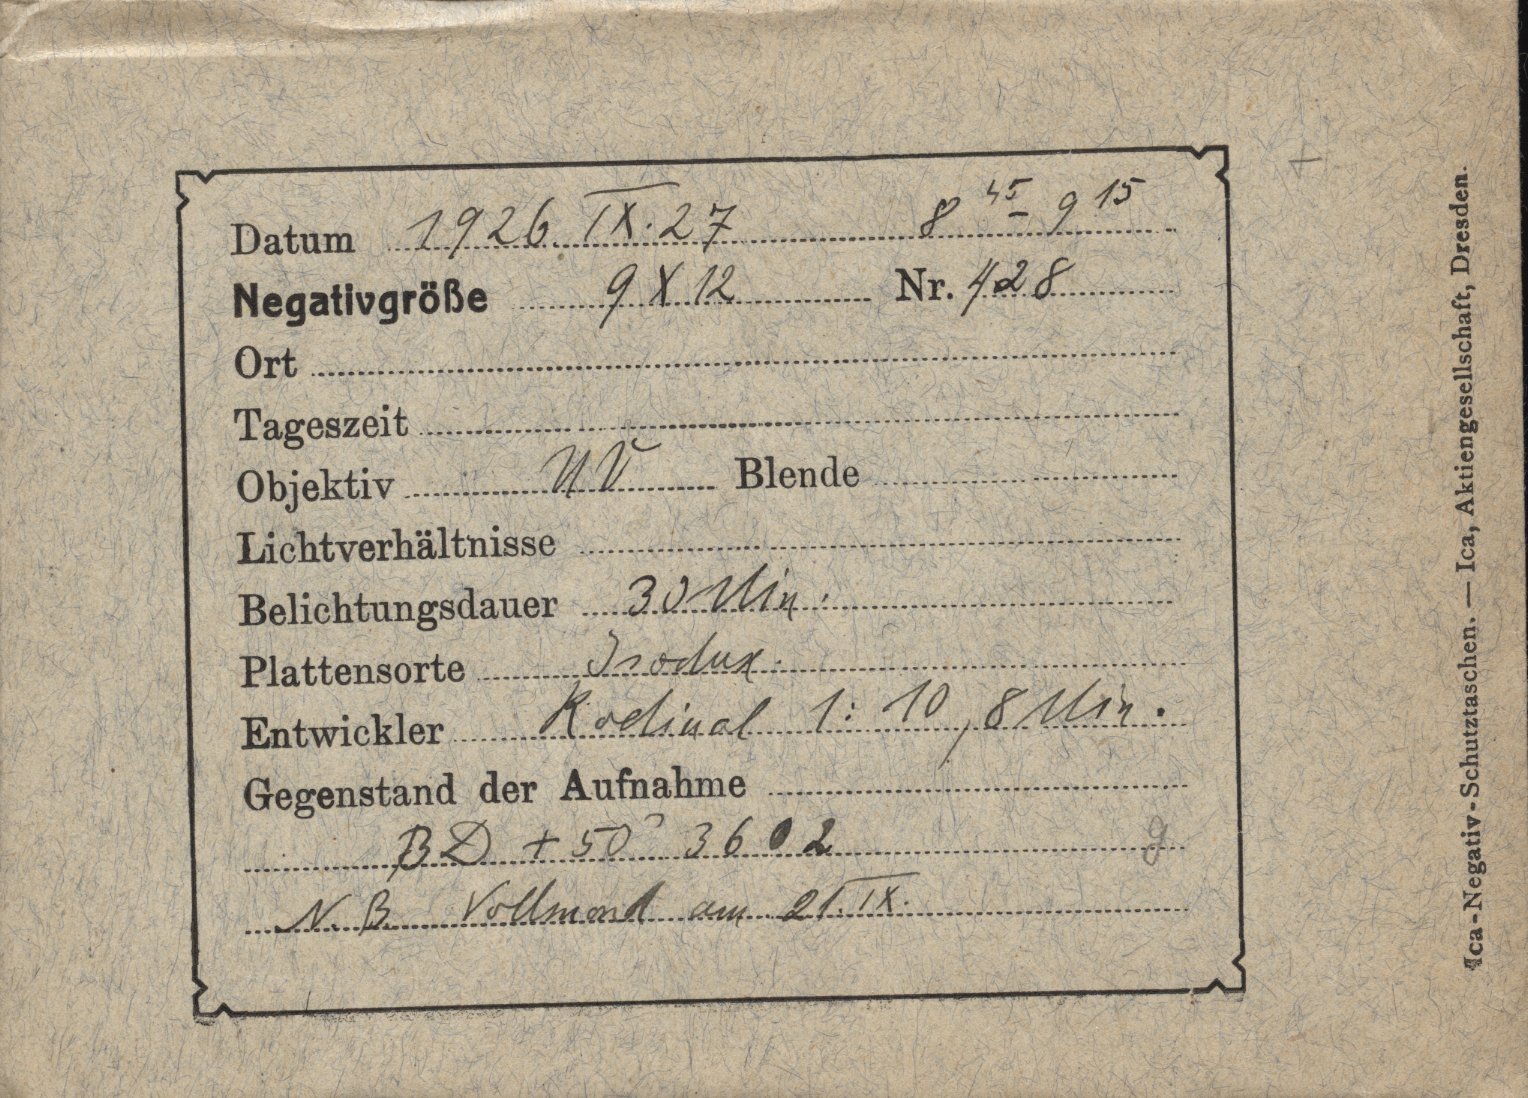 Datum 1926 IX. 27 8 45 - 9 15
Negativgröße 9 X 12 Nr. 428
Ort
Tageszeit
Objektiv UV Blende
Lichtverhältnisse
Belichtungsdauer 30 Min.
Plattensorte Isodux.
Entwickler Rodinal 1:10, 8 Min.
Gegenstand der Aufnahme
BD + 50° 3602 g
N.B. Vollmond am 21. IX.
Ica-Negativ-Schutztaschen. — Ica, Aktiengesellschaft, Dresden.